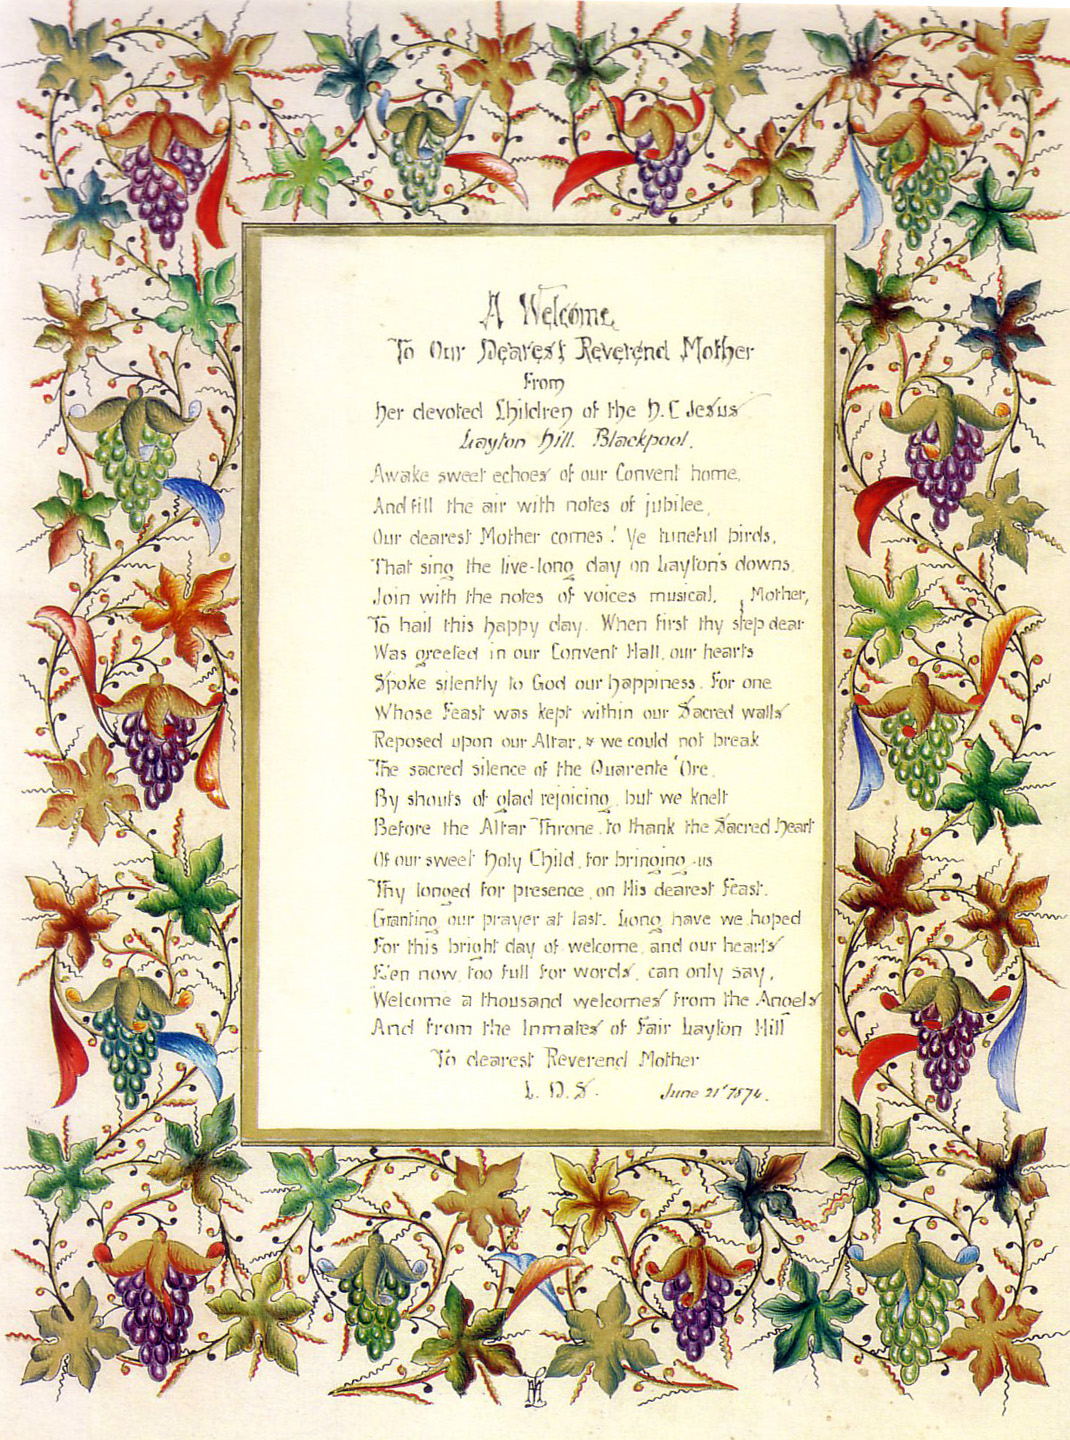 A Welcome
To Our Dearest Reverend Mother
From
her devoted Children of the H. C Jesus
Layton Hill. Blackpool.
Awake sweet echoes of our Convent home,
And fill the air with notes of jubilee,
Our dearest Mother comes! Ye tuneful birds,
That sing the live-long day on Layton's downs,
Join with the notes of voices musical,
To hail this happy day. When first thy step dear Mother,
Was greeted in our Convent Hall, our hearts
Spoke silently to God our happiness. For one
Whose Feast was kept within our Sacred walls
Reposed upon our Altar, & we could not break
The sacred silence of the Quarente 'Ore,
By shouts of glad rejoicing, but we knelt
Before the Altar Throne, to thank the Sacred Heart
Of our sweet Holy Child, for bringing us
Thy longed for presence, on His dearest Feast.
Granting our prayer at last. Long have we hoped
For this bright day of welcome, and our hearts
E'en now too full for words, can only say,
Welcome a thousand welcomes from the Angels
And from the Inmates of Fair Layton Hill
To dearest Reverend Mother
L. D. S.
June 21st 1876.